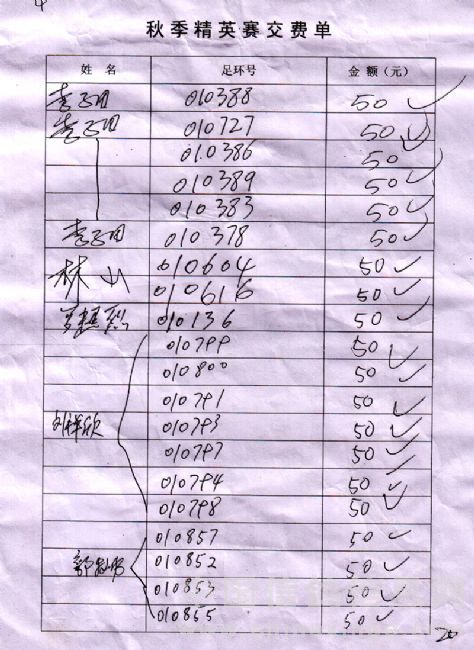 秋季精英赛交费单
姓 名 足环号 金 额（元）
010388 50
010727 50
010386 50
010389 50
010383 50
010378 50
林山 010604 50
010616 50
010136 50
010799 50
010800 50
010791 50
010793 50
010797 50
010794 50
010798 50
010857 50
010852 50
010853 50
010855 50
20